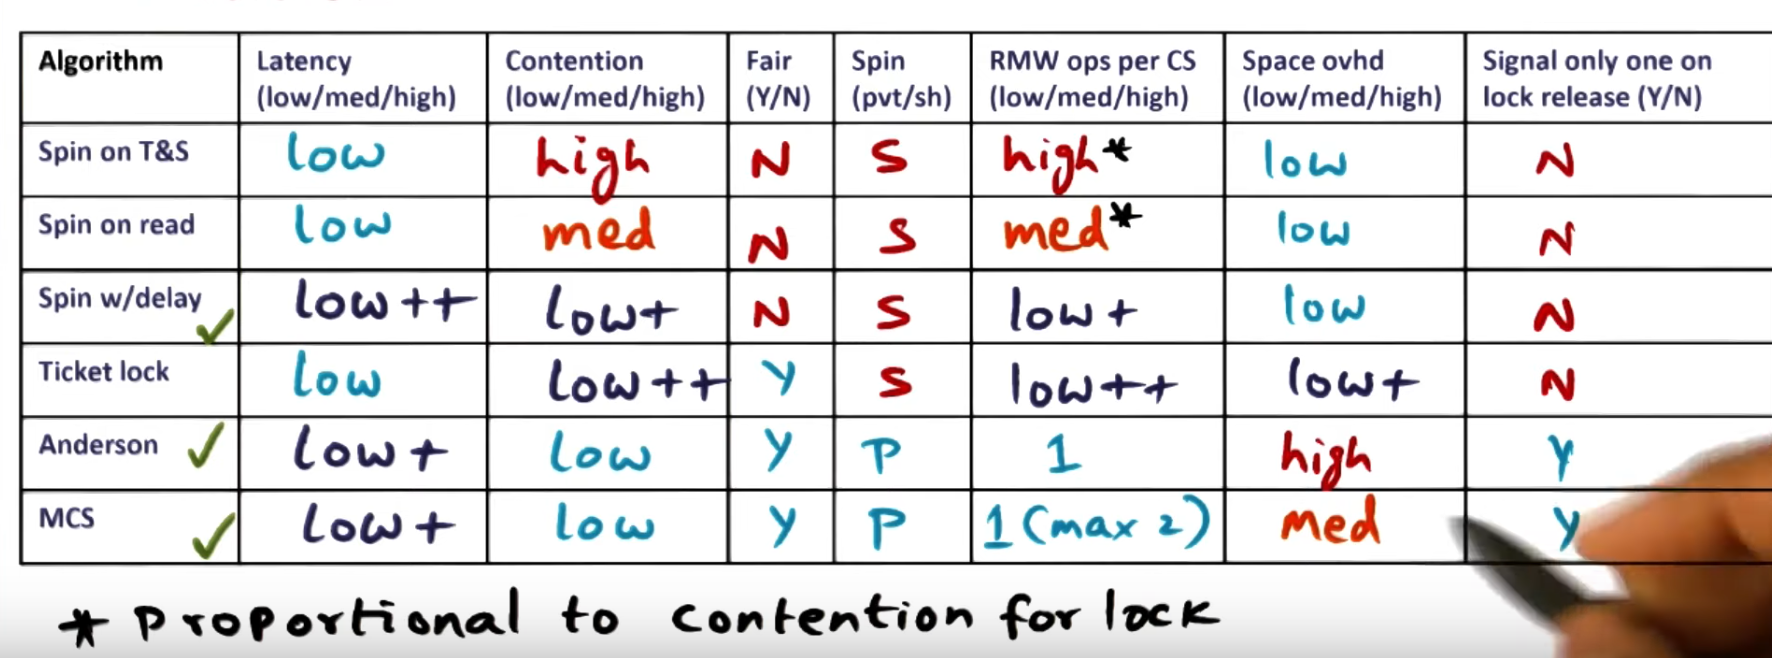 Algorithm Latency (low/med/high) Contention (low/med/high) Fair (Y/N) Spin (pvt/sh) RMW ops per CS (low/med/high) Space ovhd (low/med/high) Signal only one on lock release (Y/N)
Spin on T&S low high N S high* low N
Spin on read low med N S med* low N
Spin w/delay low ++ low+ N S low + low N
Ticket lock low low ++ Y S low++ low+ N
Anderson low + low Y P 1 high Y
MCS low + low Y P 1 (max 2) med Y
* Proportional to contention for lock